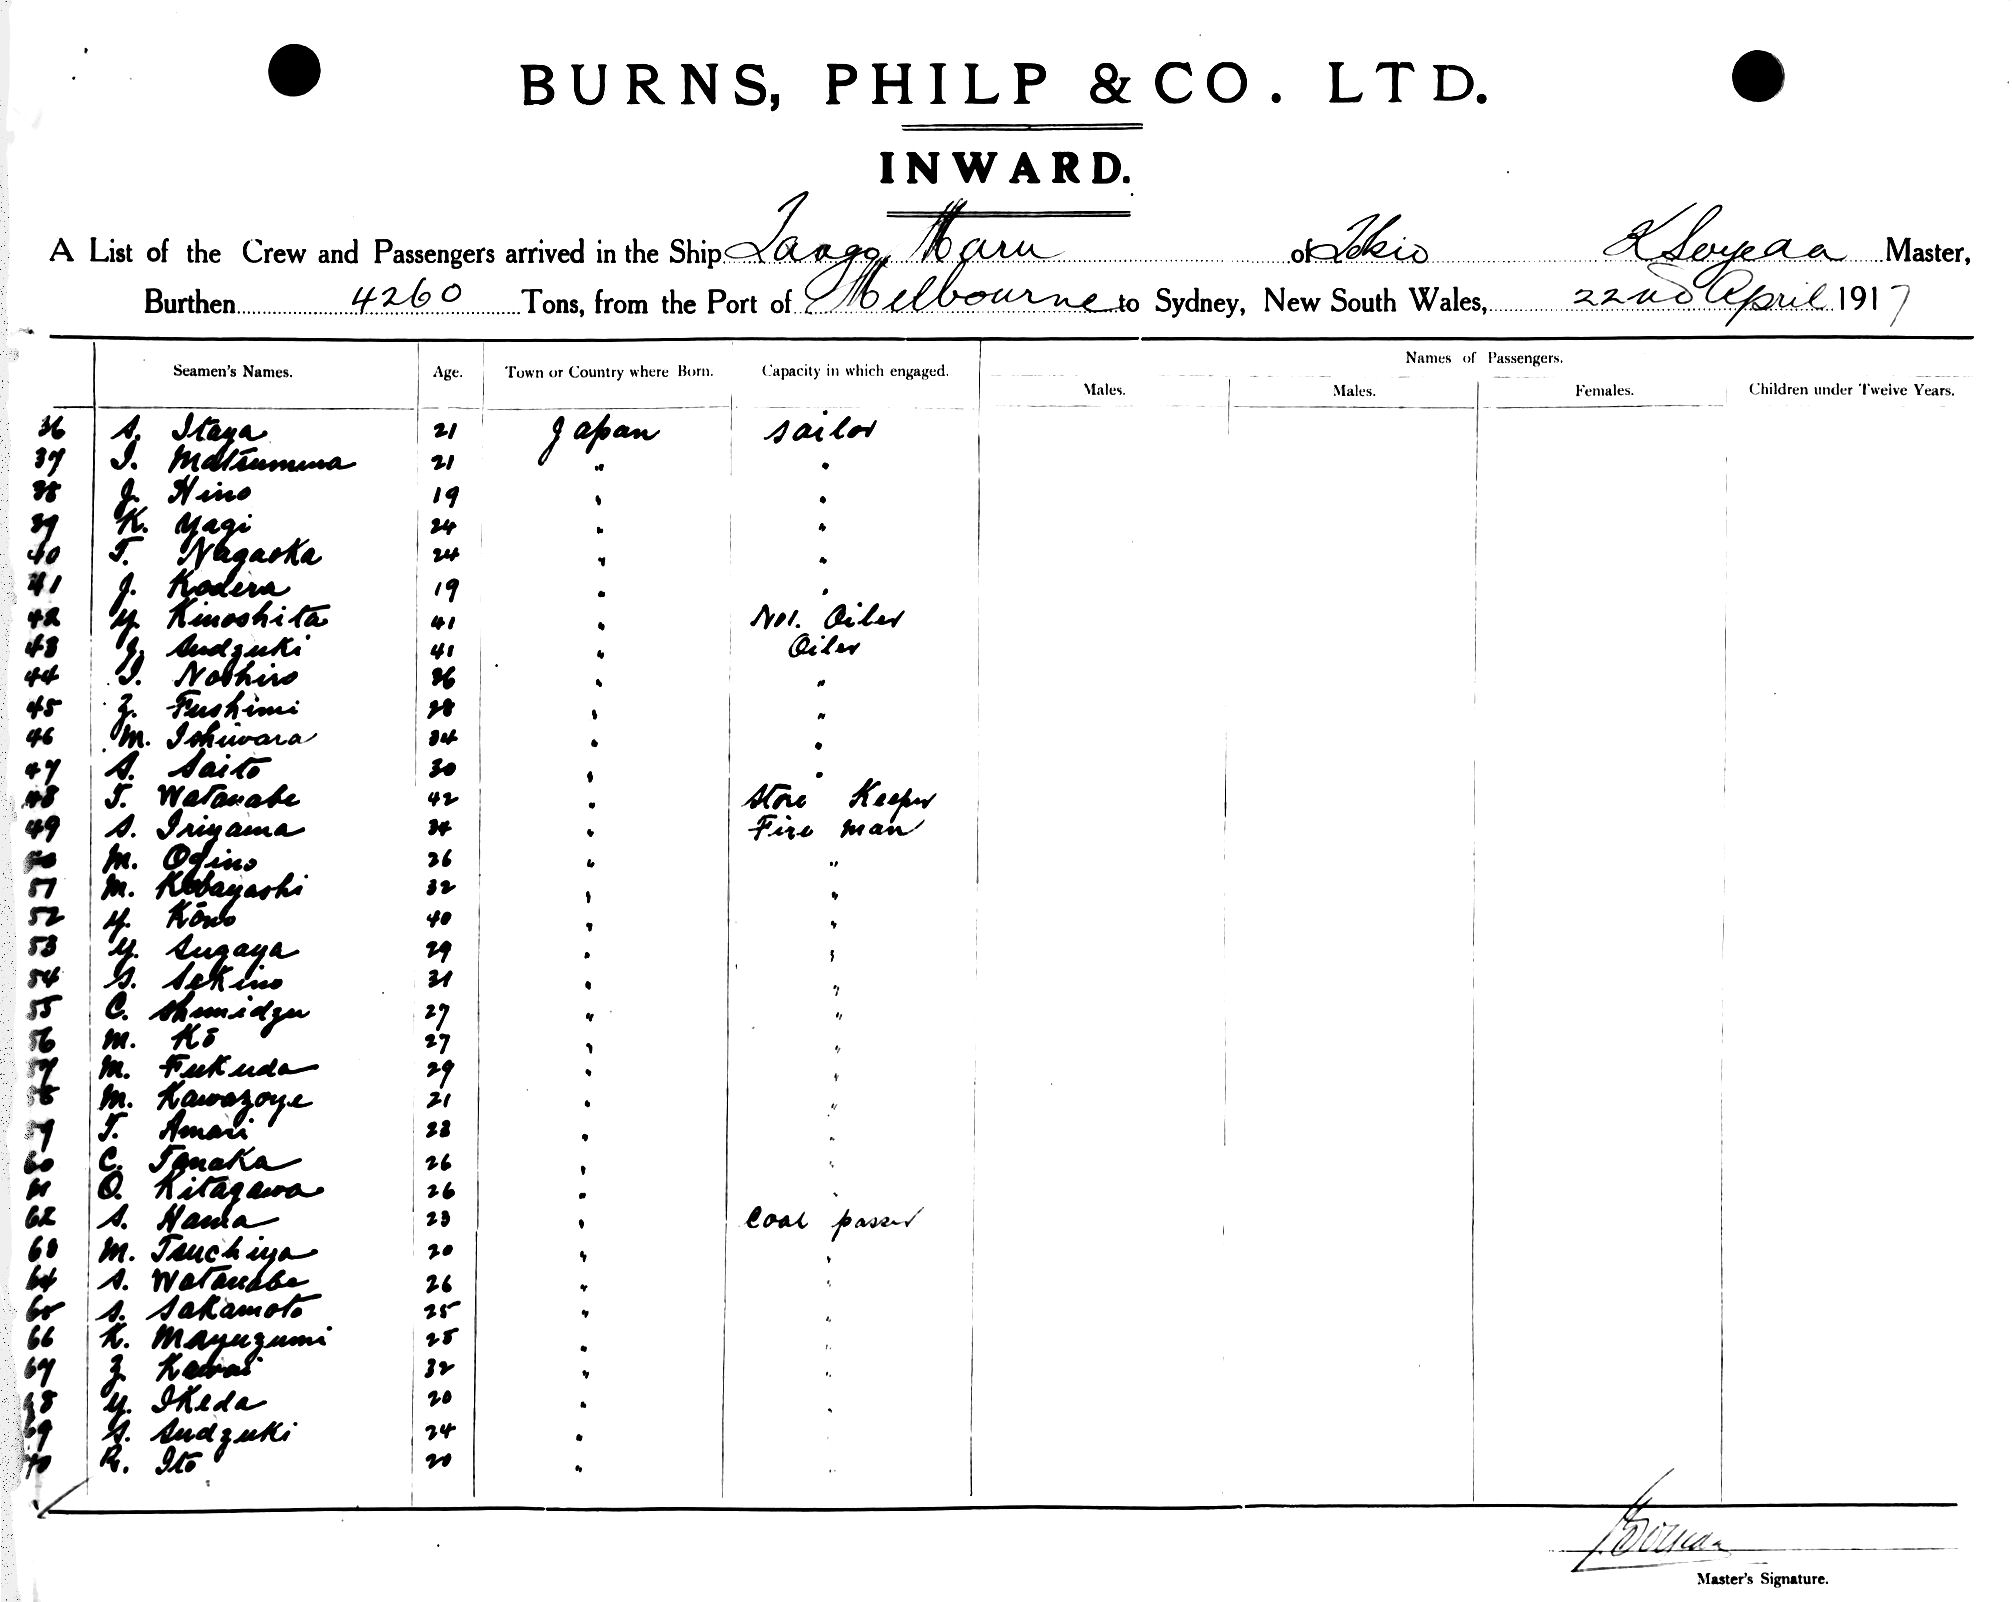 BURNS, PHILP & CO. LTD.
INWARD.
A List of the Crew and Passengers arrived in the Ship Tango Maru of Tokio K Soyeda Master,
Burthen 4260 Tons, from the Port of Melbourne to Sydney, New South Wales, 22nd April 1917
Names of Passengers.
Seamen's Names. Age. Town or Country where Born. Capacity in which engaged. Males. Males. Females. Children under Twelve Years.
36 S. Itaya 21 Japan sailor
37 I. Matsumura 21 " "
38 J. Hino 19 " "
39 K. Yagi 24 " "
40 T. Nagaoka 24 " "
41 J. Kodera 19 " "
42 Y. Kinoshita 41 " No1. Oiler
43 J. Sudzuki 41 " Oiler
44 I. Noshiro 36 " "
45 Z. Fushimi 28 " "
46 M. Ishiwara 34 " "
47 S. Saito 30 " "
48 T. Watanabe 42 " Store Keeper
49 S. Iriyama 34 " Fire man
50 M. Ogino 26 " "
51 M. Kobayashi 32 " "
52 Y. Kōno 40 " "
53 Y. Sugaya 29 " "
54 S. Sekino 31 " "
55 C. Shimidzu 27 " "
56 M. Kō 27 " "
57 M. Fukuda 29 " "
58 M. Kawazoye 21 " "
59 T. Amari 23 " "
60 C. Tanaka 26 " "
61 O. Kitagawa 26 " "
62 S. Hama 23 " Coal passer
63 M. Tsuchiya 20 " "
64 S. Watanabe 26 " "
65 S. Sakamoto 25 " "
66 K. Mayuzumi 25 " "
67 Z. Kawai 32 " "
68 Y. Ikeda 20 " "
69 S. Sudzuki 24 " "
70 R. Ito 20 " "
K Soyeda
Master's Signature.